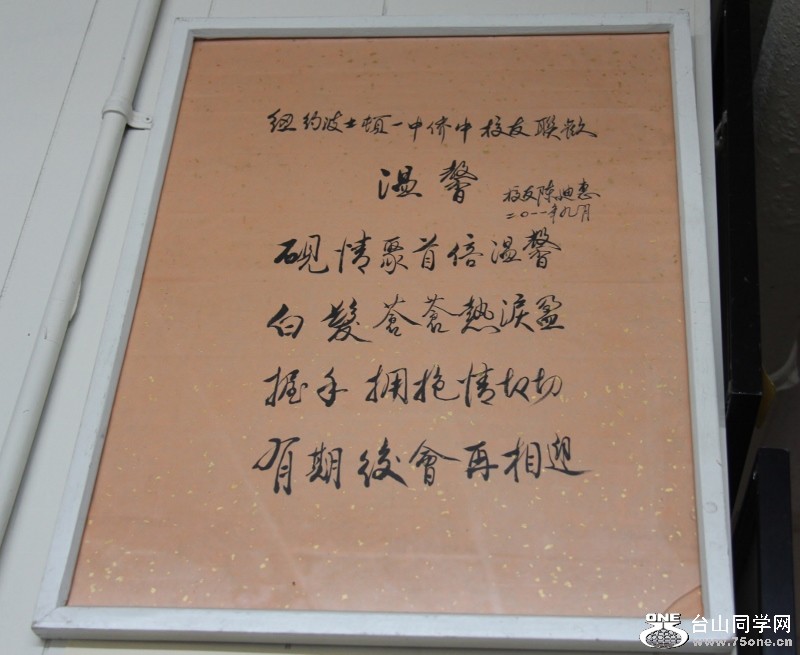 纽约波士顿一中侨中校友联欢
温馨
校友陈迪惠
二〇一一年九月
砚情聚首倍温馨
白髮蒼蒼熱淚盈
握手拥抱情切切
有期後會再相迎
ONE
台山同学网
www.75one.cn